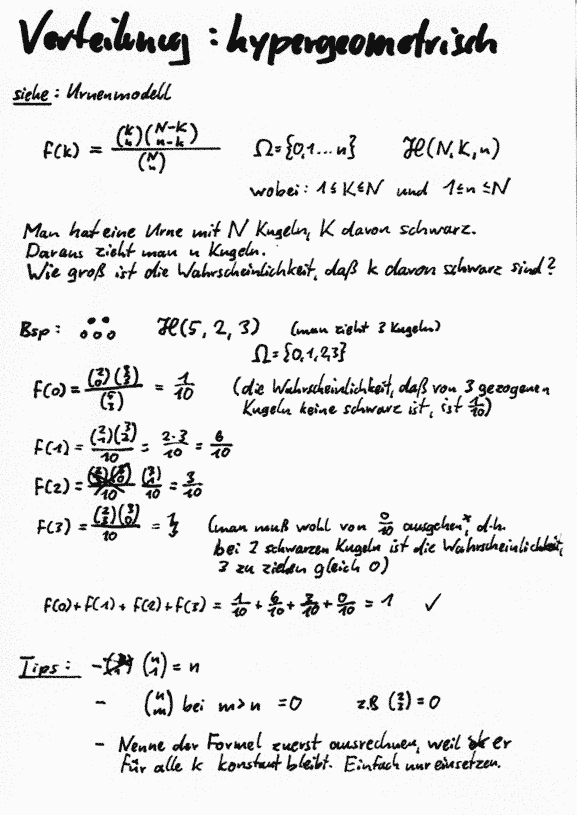 Verteilung : hypergeometrisch
siehe : Urnenmodell
f(k) = (K k)(N-K n-k) / (N n)   Ω={0,1...n}   ℋ(N,K,n)
wobei : 1≤K≤N und 1≤n≤N
Man hat eine Urne mit N Kugeln, K davon schwarz.
Daraus zieht man n Kugeln.
Wie groß ist die Wahrscheinlichkeit, daß k davon schwarz sind?
Bsp : ℋ(5, 2, 3) (man zieht 3 Kugeln)
Ω={0,1,2,3}
f(0) = (2 0)(3 3) / (5 3) = 1/10 (die Wahrscheinlichkeit, daß von 3 gezogenen
Kugeln keine schwarz ist, ist 1/10)
f(1) = (2 1)(3 2) / 10 = 2·3/10 = 6/10
f(2) = (3 1)/10 = 3/10
f(3) = (2 3)(3 0) / 10 = (man muß wohl von 0/10 ausgehen*, d.h.
bei 2 schwarzen Kugeln ist die Wahrscheinlichkeit,
3 zu ziehen gleich 0)
f(0)+f(1)+f(2)+f(3) = 1/10 + 6/10 + 3/10 + 0/10 = 1 ✓
Tips : - (n 1) = n
- (n m) bei m>n =0 z.B (2 3)=0
- Nenne der Formel zuerst ausrechnen, weil er
für alle k konstant bleibt. Einfach nur einsetzen.